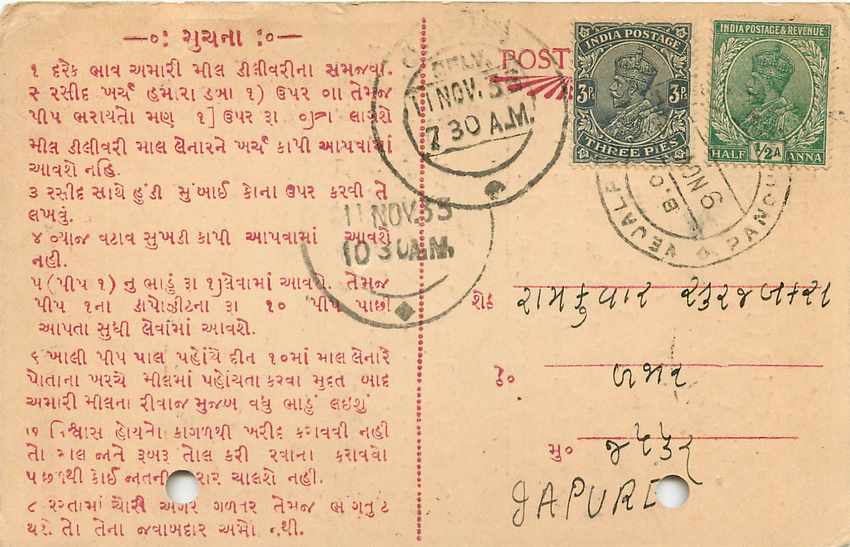 —૦: સુચના :૦—
૧ દરેક ભાવ અમારી મીલ ડીલીવરીના સમજવા.
૨ રસીદ ખર્ચ હમારા ડબા ૧) ઉપર ૦ા તેમજ
પીપ ભરાયતો મણ ૧] ઉપર રૂા લાગશે
મીલ ડીલીવરી માલ લેનારને ખર્ચ કાપી આપવામાં
આવશે નહિ.
૩ રસીદ સાથે હુંડી મુંબાઈ કોના ઉપર કરવી તે
લખવું.
૪ વ્યાજ વટાવ સુખડી કાપી આપવામાં આવશે
નહી.
૫ (પીપ ૧) નુ ભાડું રૂા ૧)લેવામાં આવશે. તેમજ
પીપ ૧ના ડીપોઝીટના રૂા ૧૦ પીપ પાછી
આપતા સુધી લેવાંમાં આવશે.
૬ ખાલી પીપ માલ પહોંચે દીન ૧૦માં માલ લેનારે
પોતાના ખરચે મીલમાં પહોંચતા કરવા મુદત બાદ
અમારી મીલના રીવાજ મુજબ વધુ ભાડું લઇશું
૭ વિશ્વાસ હોયતો કાગળથી ખરીદ કરાવવી નહી
તો માલ જાતે રૂબરૂ તોલ કરી રવાના કરાવવો
પછળથી કોઈ જાતની રાર ચાલશે નહી.
૮ રસ્તામાં ચોરી અગર ગળતર તેમજ ભાંગતુટ
થશે તો તેના જવાબદાર અમો નથી.
POST
INDIA POSTAGE
3P. 3P.
THREE PIES
INDIA POSTAGE & REVENUE
HALF ½A ANNA
DELY.
11 NOV. 35
7 30 A.M.
11 NOV. 35
10 30 A.M.
VEJALP
PANCH
B.O.
9 NO
શેઠ રામકુવાર
ઠે૦ બજાર
મુ૦
JAPURE